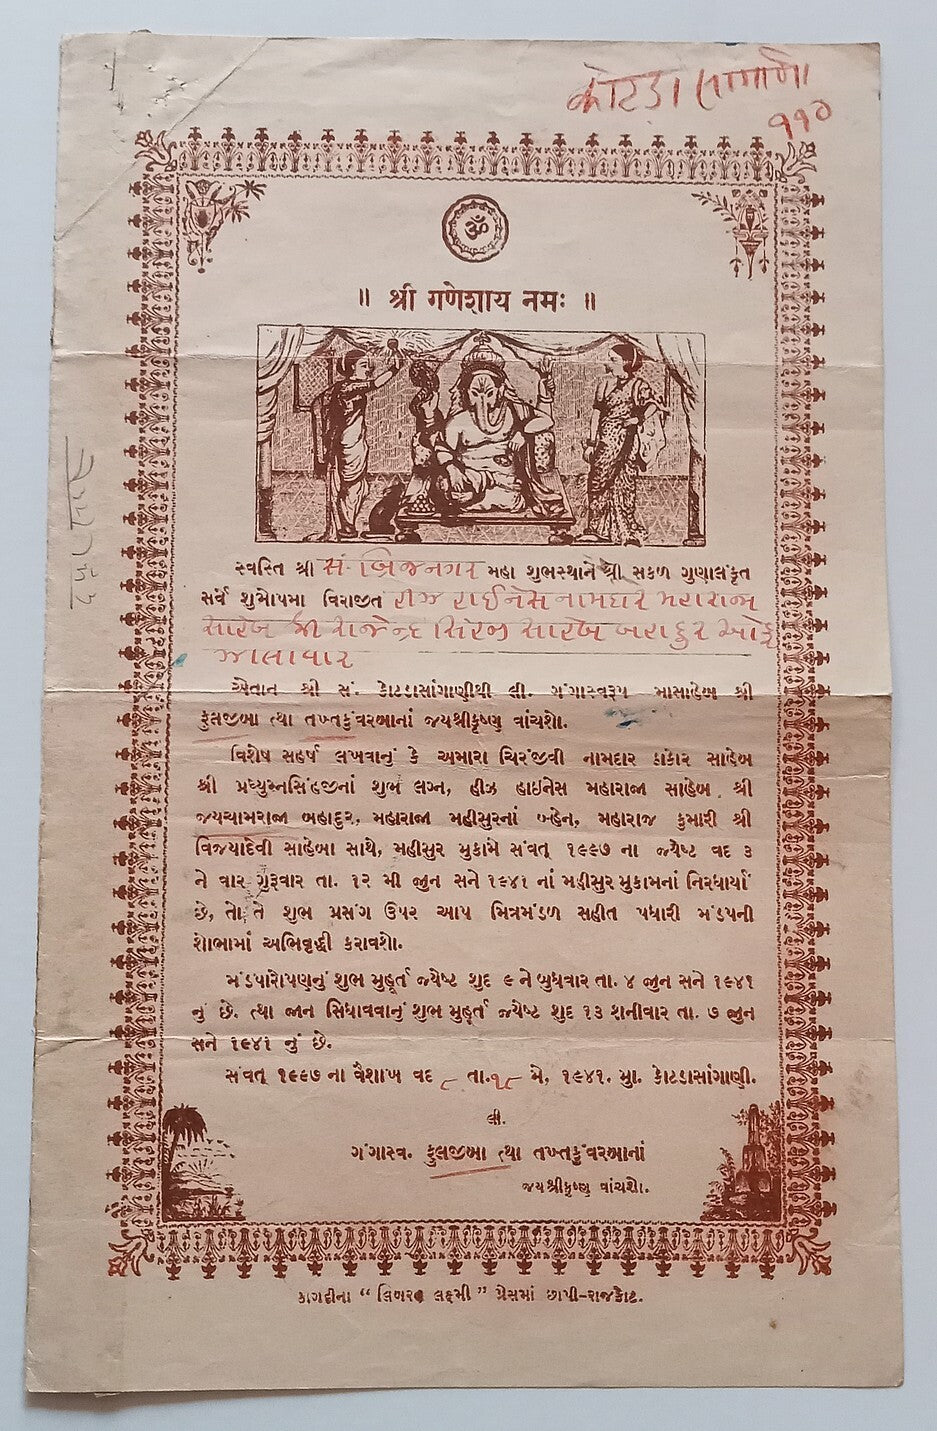 कोटडा सांगाणी
११०
ॐ
॥ श्री गणेशाय नमः ॥
સ્વસ્તિ શ્રી સં. બ્રિજનગર મહા શુભસ્થાને શ્રી સકળ ગુણાલંકૃત
સર્વ શુભોપમા વિરાજીત હીઝ હાઈનેસ નામદાર મહારાજા
સાહેબ શ્રી રાજેન્દ્ર સિંહજી સાહેબ બહાદુર ઓફ
ઝાલાવાર
એતાન શ્રી સં. કોટડાસાંગાણીથી લી. ગંગાસ્વરૂપ માસાહેબ શ્રી
કુંલજીબા ત્થા તખ્તકુંવરબાનાં જયશ્રીકૃષ્ણ વાંચશો.
વિશેષ સહર્ષ લખવાનું કે અમારા ચિરંજીવી નામદાર ઠાકોર સાહેબ
શ્રી પ્રધ્યુમ્નસિંહજીનાં શુભ લગ્ન, હીઝ હાઈનેસ મહારાજા સાહેબ શ્રી
જયચામરાજા બહાદુર, મહારાજા મહીસુરનાં બ્હેન, મહારાજ કુમારી શ્રી
વિજયાદેવી સાહેબા સાથે, મહીસુર મુકામે સંવત્ ૧૯૯૭ ના જ્યેષ્ટ વદ ૩
ને વાર ગુરૂવાર તા. ૧૨ મી જુન સને ૧૯૪૧ નાં મહીસુર મુકામનાં નિરધાર્યાં
છે, તો તે શુભ પ્રસંગ ઉપર આપ મિત્રમંડળ સહીત પધારી મંડપની
શોભામાં અભિવૃદ્ધી કરાવશો.
મંડપારોપણનું શુભ મુહૂર્ત જ્યેષ્ટ શુદ ૯ ને બુધવાર તા. ૪ જુન સને ૧૯૪૧
નું છે. ત્થા જાન સિધાવવાનું શુભ મુહૂર્ત જ્યેષ્ટ શુદ ૧૩ શનીવાર તા. ૭ જુન
સને ૧૯૪૧ નું છે.
સંવત્ ૧૯૯૭ ના વૈશાખ વદ ૮ તા. ૧૮ મે, ૧૯૪૧. મુ. કોટડાસાંગાણી.
લી.
ગંગાસ્વ. કુંલજીબા ત્થા તખ્તકુંવરબાનાં
જયશ્રીકૃષ્ણ વાંચશો.
કાગદીના “ લિબરલ લક્ષ્મી ” પ્રેસમાં છાપી-રાજકોટ.